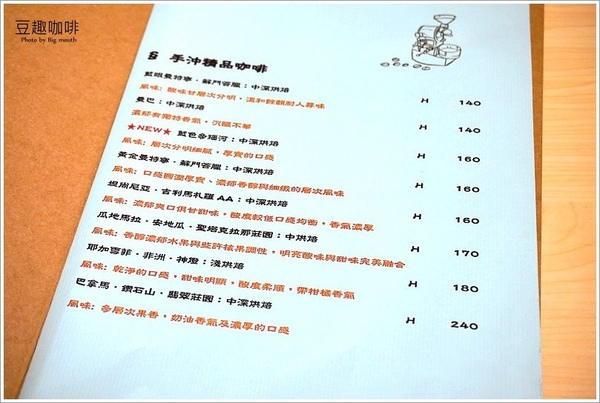 豆趣咖啡
Photo by Big mouth
§ 手沖精品咖啡
藍眼曼特寧．蘇門答臘：中深烘焙
風味：酸味甘層次分明，溫和餘韻耐人尋味 H 140
曼巴：中深烘焙
濃郁有獨特香氣，沉穩不華 H 140
★NEW★ 藍色多瑙河：中深烘焙
風味：層次分明細膩，厚實的口感 H 160
黃金曼特寧．蘇門答臘：中深烘焙
風味：口感圓潤厚實、濃郁香醇與細緻的層次風味 H 160
坦尚尼亞．吉利馬札羅 AA：中深烘焙
風味：濃郁爽口俱甘甜味，酸度較低口感均衡，香氣濃厚 H 160
瓜地馬拉．安地瓜．聖塔克拉那莊園：中烘焙
風味：香醇濃郁水果與些許核果調性，明亮酸味與甜味完美融合 H 170
耶加雪菲．非洲．神燈：淺烘焙
風味：乾淨的口感，甜味明顯，酸度柔順，帶柑橘香氣 H 180
巴拿馬．鑽石山．翡翠莊園：中深烘焙
風味：多層次果香，奶油香氣及濃厚的口感 H 240